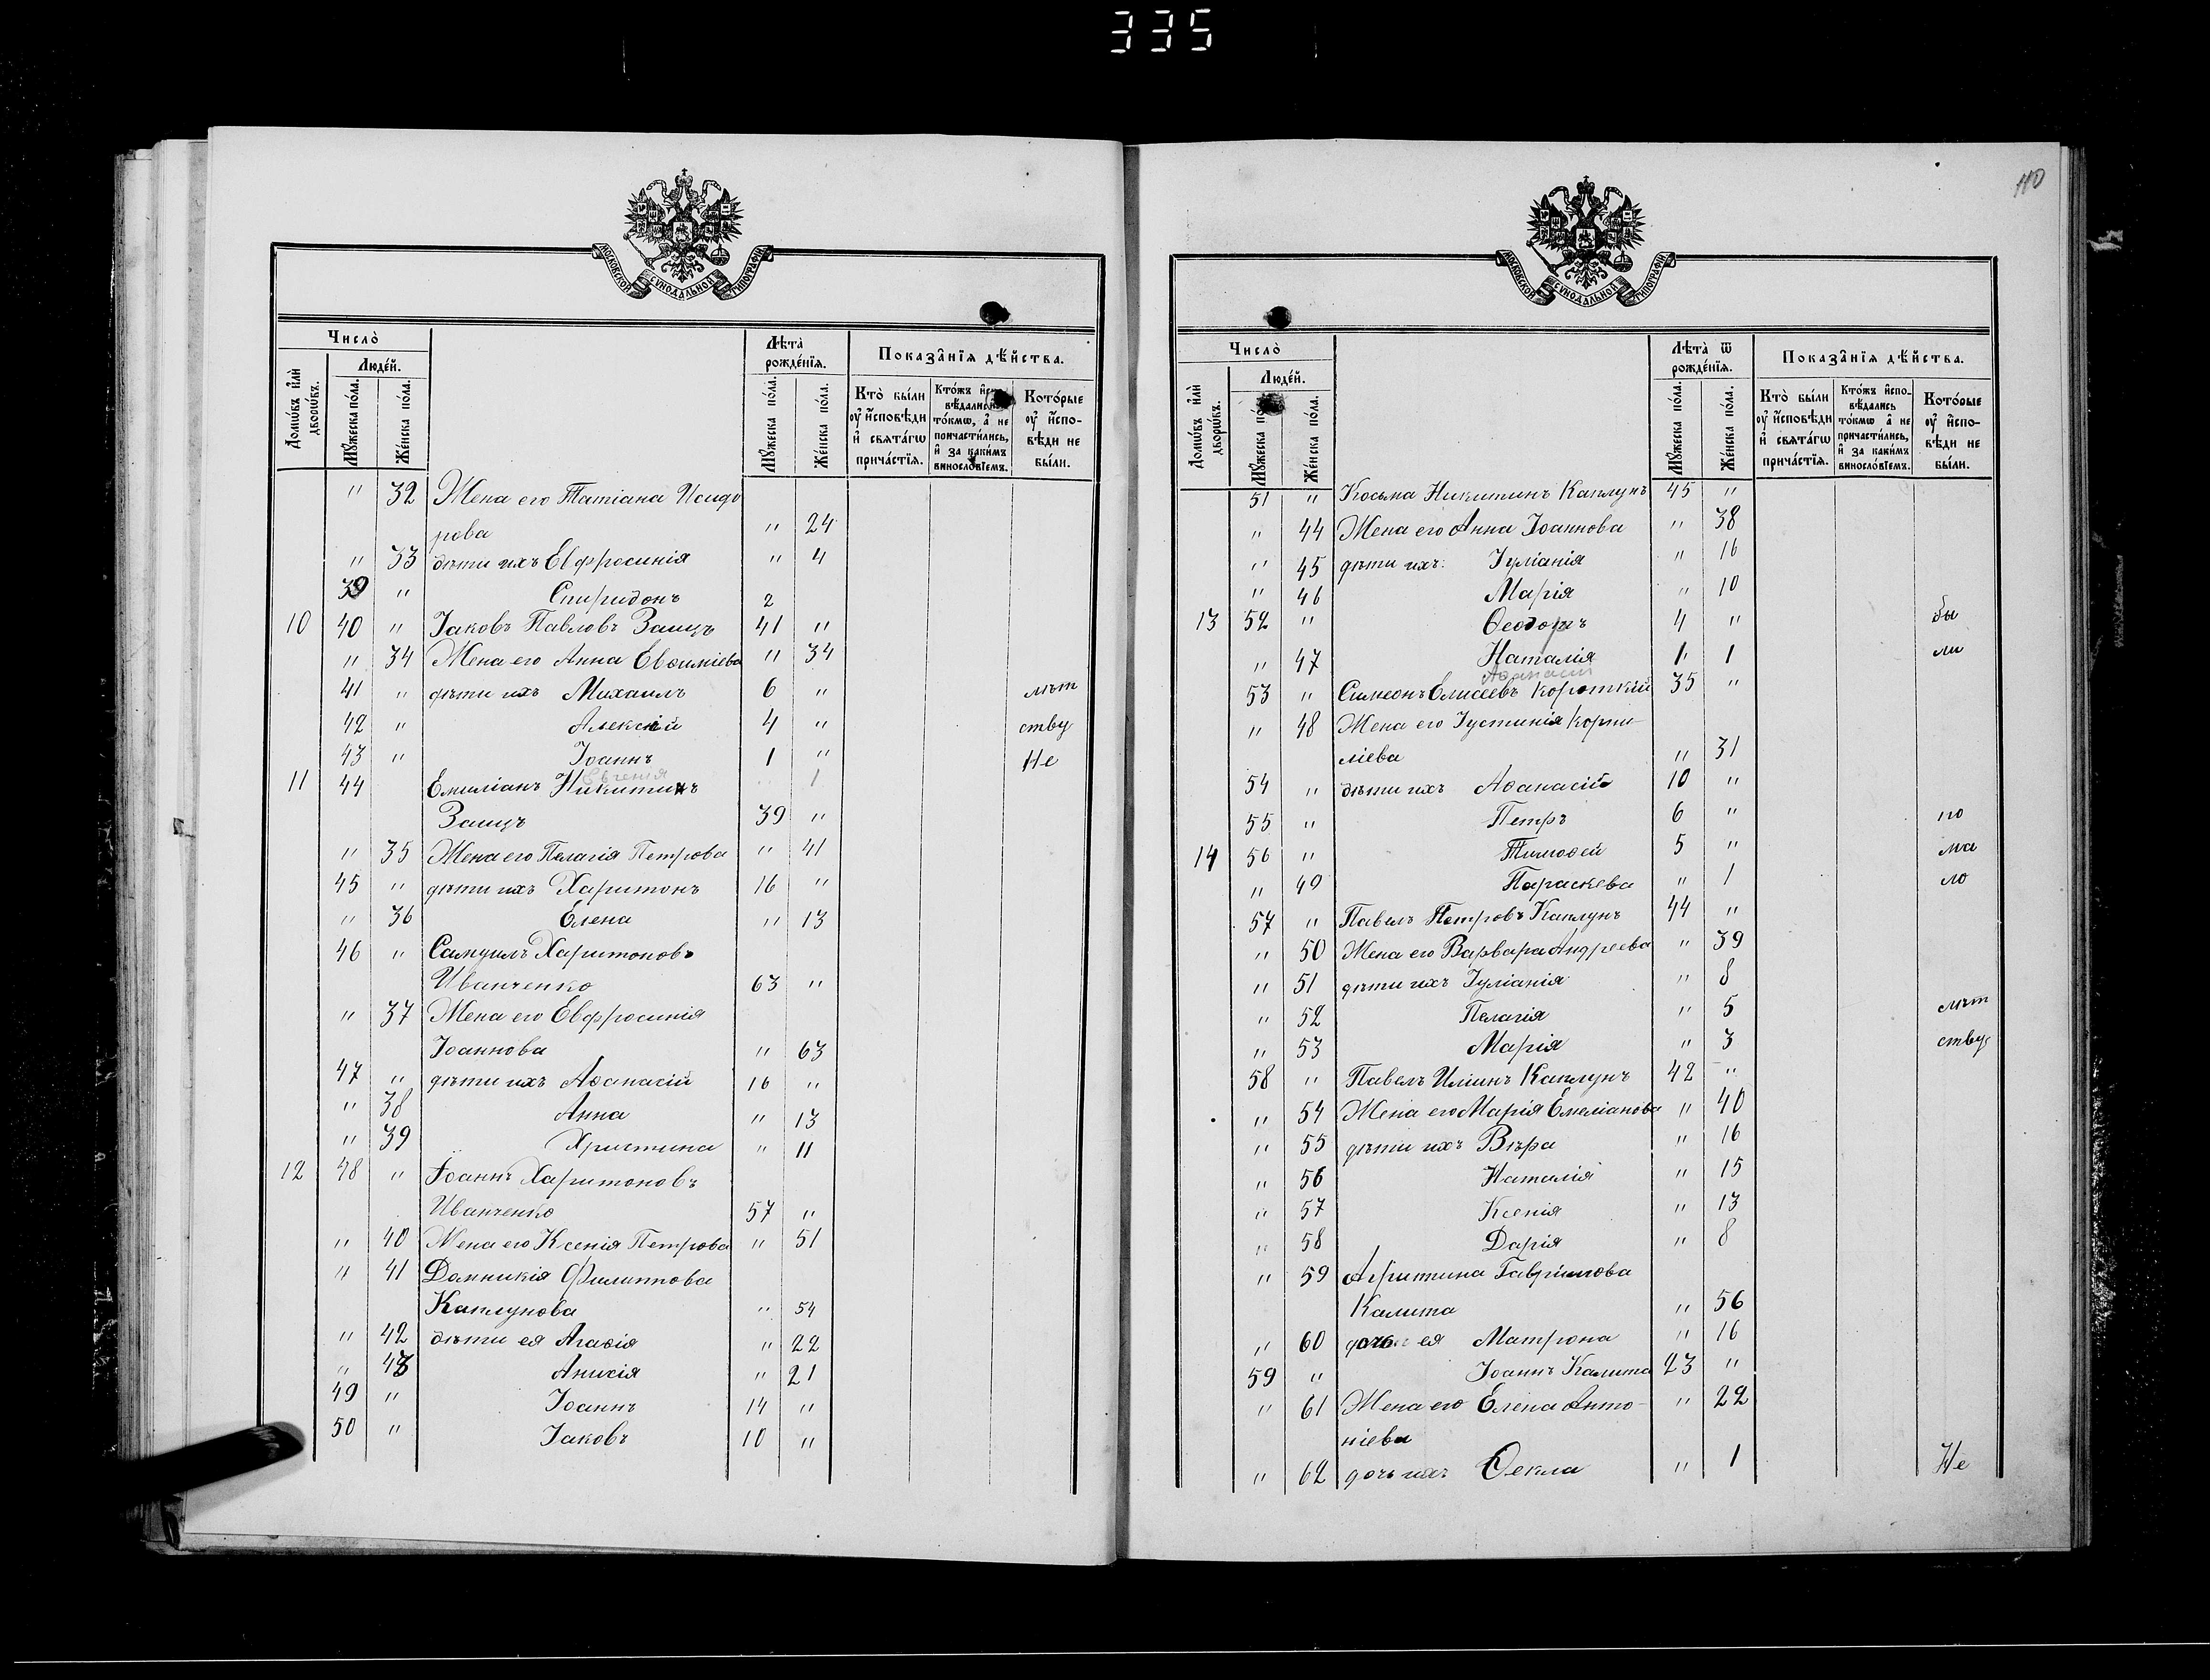 335
110
МОСКОВСКОЙ СѴНОДАЛЬНОЙ ТИПОГРАФІИ
Число̀
Людей.
Домѡвъ и҆лѝ дворѡвъ.
Мꙋжеска по́ла.
Же́нска по́ла.
Лѣта̀ рожде́нїѧ.
Мꙋжеска по́ла.
Же́нска по́ла.
Показа̑нїѧ дѣ́йства.
Кто̀ были оу҆ и҆́сповѣди и҆ свѧта́гѡ прича́стїѧ.
Кто́жъ и҆сповѣдались то́кмѡ, а҆ не причасти́лись, и҆ за каки́мъ винослові́емъ.
Кото́рые оу҆ и҆́сповѣди не бы́ли.
" 32 Жена его Татіана Исидо
рова " 24
" 33 дѣти ихъ Евфросинія " 4
39 " Спиридонъ 2
10 40 " Іаковъ Павловъ Заецъ 41 "
" 34 Жена его Анна Евѳиміева " 34
41 " дѣти ихъ Михаилъ 6 " лѣт
42 " Алексій 4 " ству
43 " Іоаннъ 1 " Не
Евгенія 1
11 44 Емиліанъ Никитинъ
Заецъ 39 "
" 35 Жена его Пелагія Петрова " 41
45 " дѣти ихъ Харитонъ 16 "
" 36 Елена " 13
46 " Самуилъ Харитоновъ
Иванченко 63 "
" 37 Жена его Евфросинія
Іоаннова " 63
47 " дѣти ихъ Аѳанасій 16 "
" 38 Анна " 13
" 39 Христина " 11
12 48 " Іоаннъ Харитоновъ
Иванченко 57 "
" 40 Жена его Ксенія Петрова " 51
" 41 Домникія Филиппова
Каплунова " 54
" 42 дѣти ея Агаѳія " 22
" 43 Анисія " 21
49 " Іоаннъ 14 "
50 " Іаковъ 10 "
МОСКОВСКОЙ СѴНОДАЛЬНОЙ ТИПОГРАФІИ
Число̀
Людей.
Домѡвъ и҆лѝ дворѡвъ.
Мꙋжеска по́ла.
Же́нска по́ла.
Лѣта̀ ѿ рожде́нїѧ.
Мꙋжеска по́ла.
Же́нска по́ла.
Показа̑нїѧ дѣ́йства.
Кто̀ были оу҆ и҆́сповѣди и҆ свѧта́гѡ прича́стїѧ.
Кто́жъ и҆сповѣдались то́кмѡ а҆ не причасти́лись, и҆ за каки́мъ винослові́емъ.
Кото́рые оу҆ и҆́сповѣди не бы́ли.
51 " Косьма Никитинъ Каплунъ 45 "
" 44 Жена его Анна Іоаннова " 38
" 45 дѣти ихъ: Іуліанія " 16
" 46 Марія " 10
13 52 " Ѳеодоръ 4 " бы
" 47 Наталія " 1 ли
Аѳанасій
53 " Симеонъ Елисеевъ Короткій 35 "
" 48 Жена его Іустинія Корни-
ліева " 31
54 " дѣти ихъ Аѳанасій 10 "
55 " Петръ 6 " по
14 56 " Тимоѳей 5 " ма
" 49 Параскева " 1 ло
57 " Павелъ Петровъ Каплунъ 44 "
" 50 Жена его Варвара Андреева " 39
" 51 дѣти ихъ Іуліанія " 8
" 52 Пелагія " 5 лѣт
" 53 Марія " 3 ству
58 " Павелъ Иліинъ Каплунъ 42 "
" 54 Жена его Марія Емеліанова " 40
" 55 дѣти ихъ Вѣра " 16
" 56 Наталія " 15
" 57 Ксенія " 13
" 58 Дарія " 8
" 59 Агрипина Гавриилова
Калита " 56
" 60 дочь ея Матрона " 16
59 " Іоаннъ Калита 23 "
" 61 Жена его Елена Анто- " 22
ніева
" 62 дочь ихъ Ѳекла " 1 Не